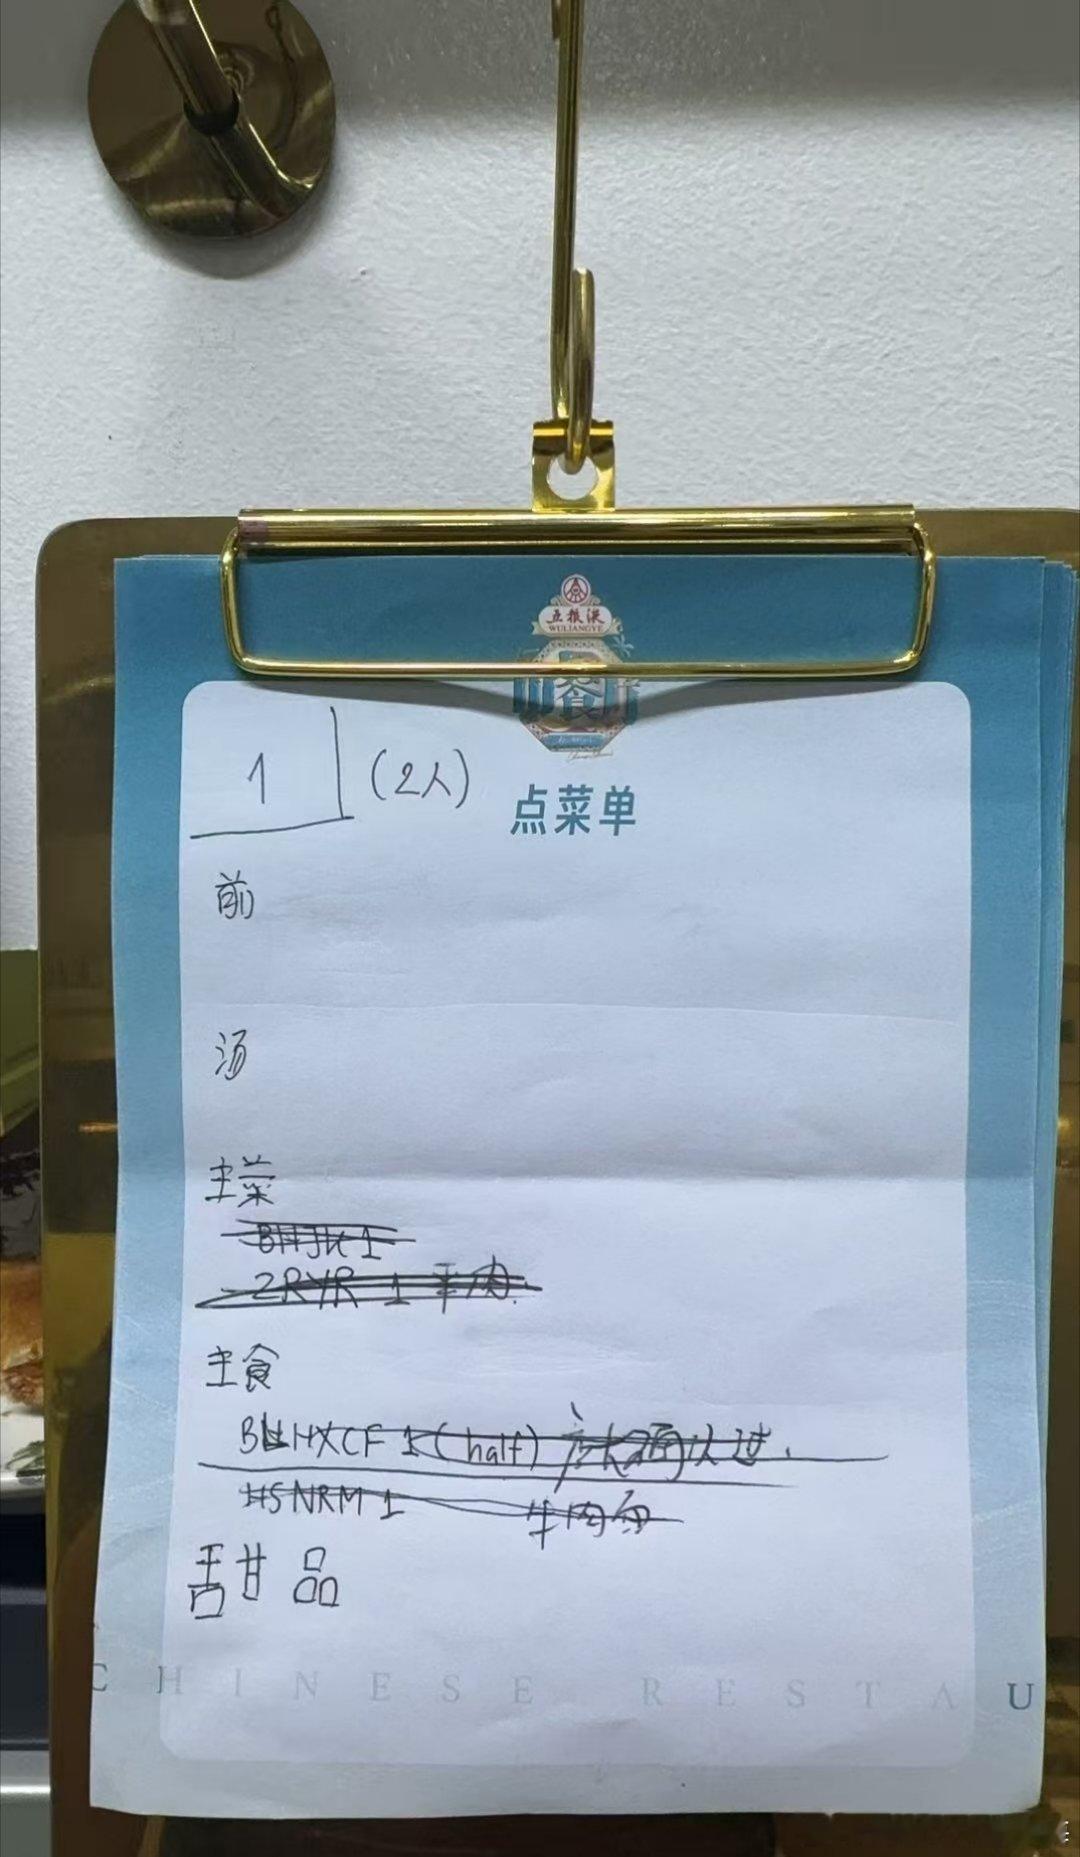 五粮液
WULIANGYE
餐
1 (2人)
点菜单
前
汤
主菜
BHJK 1
ZRYR 1 羊肉
主食
HXCF 1 (half)
HSNRM 1 牛肉面
甜品
CHINESE RESTAU